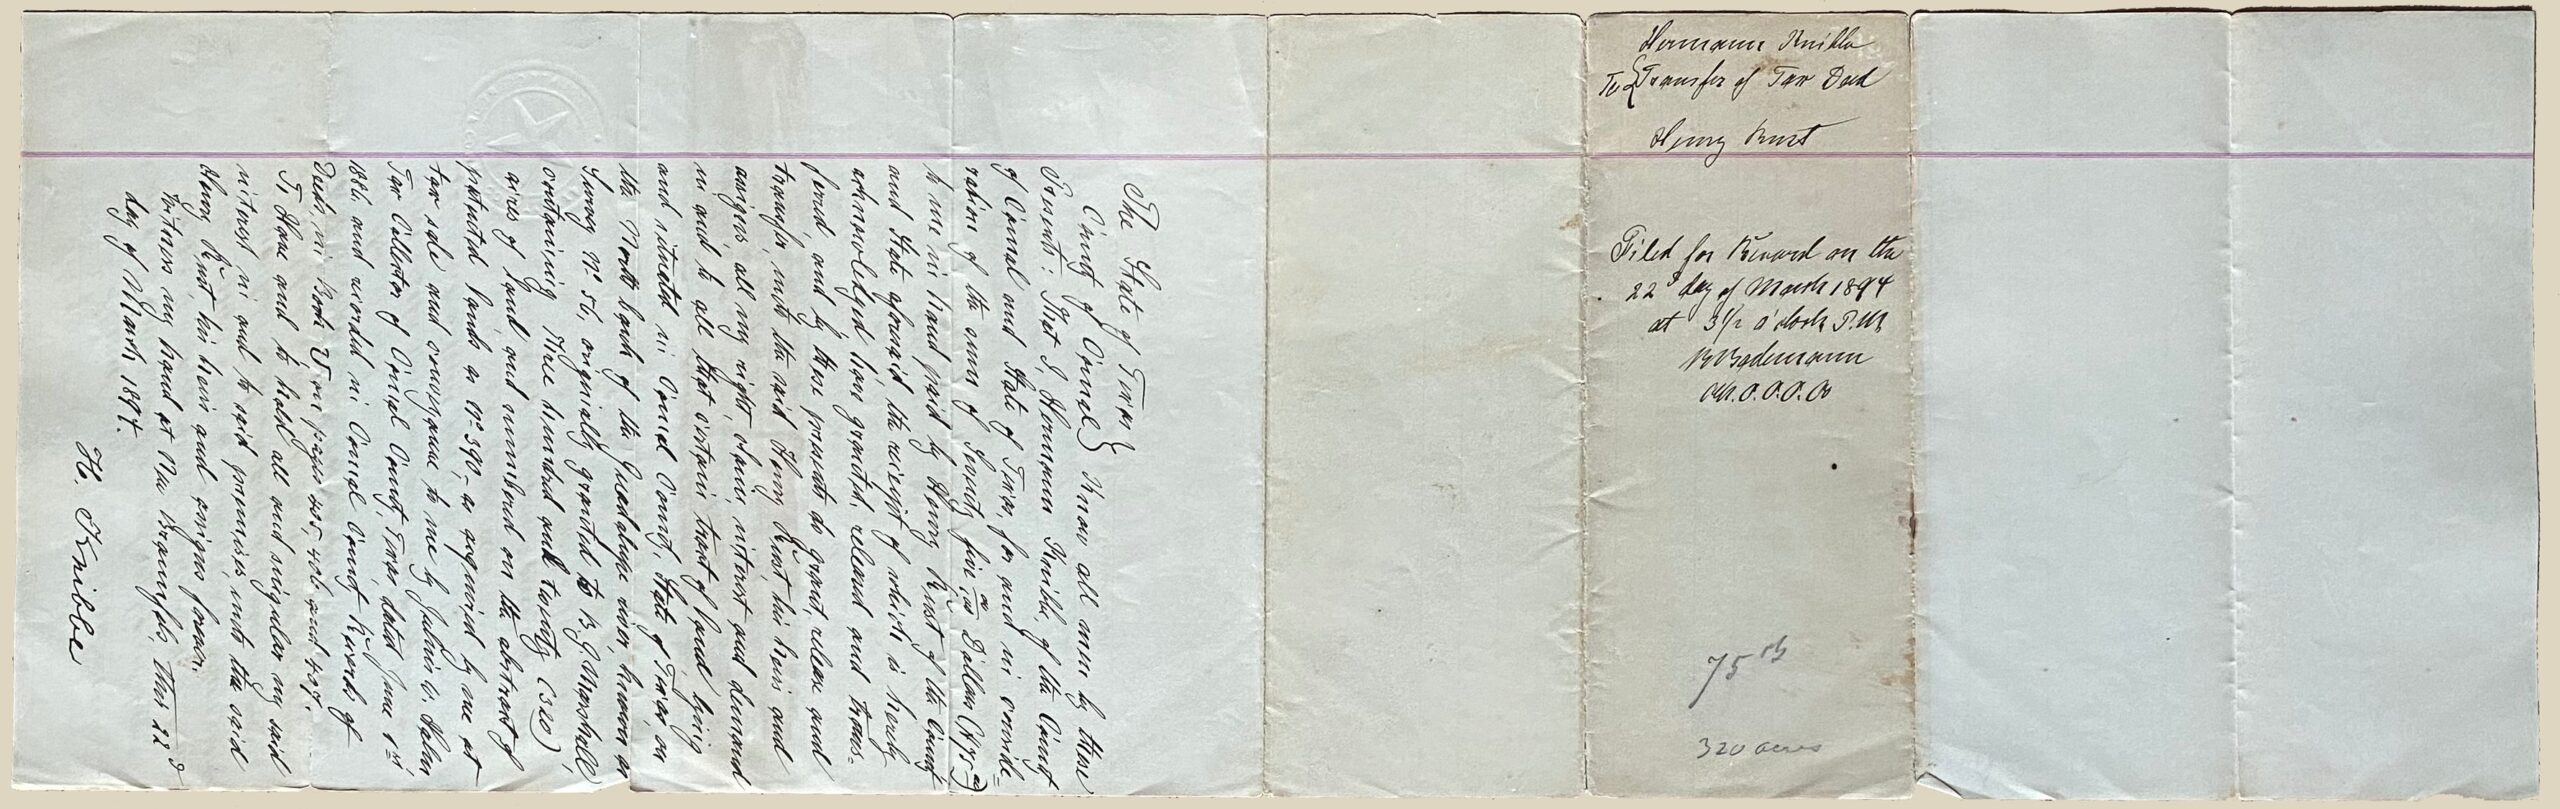 The State of Texas
County of Comal } Know all men by these
Presents: That I, Hermann Knibbe, of the County
of Comal and State of Texas, for and in conside=
ration of the sum of Seventy five oo/100 Dollars ($75 oo)
to me in hand paid by Henry Rust of the County
and State aforesaid the receipt of which is hereby
acknowledged have granted, released and trans-
ferred, and by these presents do grant, release and
transfer, unto the said Henry Rust, his heirs and
assigns, all my right, claim, interest and demand
in and to all that certain tract of land lying
and situated in Comal County, State of Texas on
the North bank of the Guadalupe river, known as
Survey No 56, originally granted to B. G. Marshall,
containing three hundred and twenty (320)
acres of land, and numbered on the abstract of
patented lands as No 390,- as acquired by me at
tax sale and conveyance to me by Julius C. Halm
Tax Collector of Comal County, Texas dated June 1st
1886 and recorded in Comal County Records of
Deeds, in Book on pages 405, 406 and 407.
To Have and to hold all and singular my said
interest in and to said premises, unto the said
Henry Rust, his heirs and assigns forever.
Witness my hand at New Braunfels, this 22 d
day of March 1894.
H. Knibbe
Hermann Knibbe
To { Transfer of Tax Deed
Henry Rust
Filed for Record on the
22d day of March 1894
at 3 1/2 o'clock P.M.
Bodemann
75
320 acres